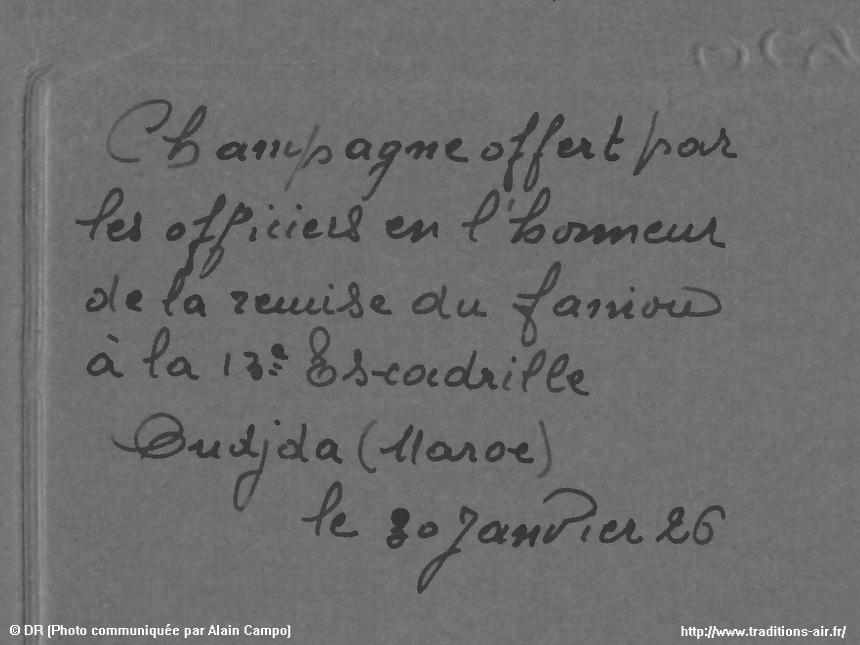 Champagne offert par
les officiers en l'honneur
de la remise du fanion
à la 13e Escadrille
Oudjda (Maroc)
le 30 Janvier 26
© DR (Photo communiquée par Alain Campo)
http://www.traditions-air.fr/